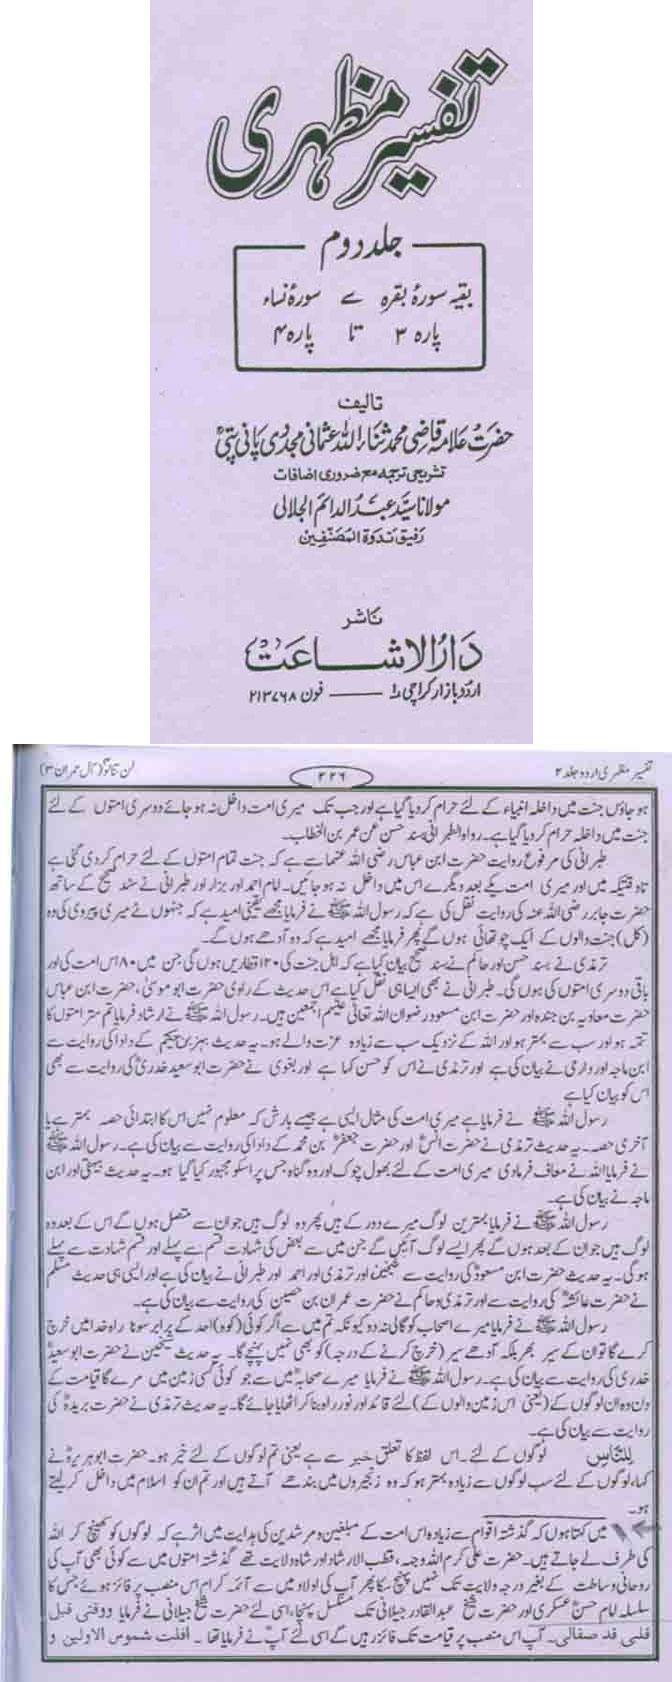 تفسیر مظہری
جلد دوم
بقیہ سورۂ بقرہ سے سورۂ نساء
پارہ ۳ تا پارہ ۴
تالیف
حضرت علامہ قاضی محمد ثناء اللہ عثمانی مجددی پانی پتیؒ
تشریحی ترجمہ مع ضروری اضافات
مولانا سید عبد الدائم الجلالی
رفیق ندوۃ المصنفین
ناشر
دار الاشاعت
اردو بازار کراچی ۱ — فون ۲۱۳۷۶۸
تفسیر مظہری اردو جلد ۲
۲۲۶
لن تنالوا (آل عمران ۳)
ہو جاؤں جنت میں داخلہ انبیاء کے لئے حرام کر دیا گیا ہے اور جب تک میری امت داخل نہ ہو جائے دوسری امتوں کے لئے
جنت میں داخلہ حرام کر دیا گیا ہے۔ رواہ الطبرانی بسند حسن عن عمر بن الخطاب۔
طبرانی کی مرفوع روایت حضرت ابن عباس رضی اللہ عنہما سے ہے کہ جنت تمام امتوں کے لئے حرام کر دی گئی ہے
تاوقتیکہ میں اور میری امت یکے بعد دیگرے اس میں داخل نہ ہو جائیں۔ امام احمد اور بزار اور طبرانی نے سند صحیح کے ساتھ
حضرت جابر رضی اللہ عنہ کی روایت نقل کی ہے کہ رسول اللہ ﷺ نے فرمایا مجھے یقینی امید ہے کہ جنہوں نے میری پیروی کی وہ
(کل) جنت والوں کے ایک چوتھائی ہوں گے پھر فرمایا مجھے امید ہے کہ وہ آدھے ہوں گے۔
ترمذی نے بسند حسن اور حاکم نے بسند صحیح بیان کیا ہے کہ اہل جنت کی ۱۲۰ قطاریں ہوں گی جن میں ۸۰ اس امت کی اور
باقی دوسری امتوں کی ہوں گی۔ طبرانی نے بھی ایسا ہی نقل کیا ہے اس حدیث کے راوی حضرت ابو موسیٰ، حضرت ابن عباس
حضرت معاویہ بن جندہ اور حضرت ابن مسعود رضوان اللہ تعالیٰ علیہم اجمعین ہیں۔ رسول اللہ ﷺ نے ارشاد فرمایا تم ستر امتوں کا
تتمہ ہو اور سب سے بہتر ہو اور اللہ کے نزدیک سب سے زیادہ عزت والے ہو۔ یہ حدیث بہز بن حکیم کے دادا کی روایت سے
ابن ماجہ اور دارمی نے بیان کی ہے اور ترمذی نے اس کو حسن کہا ہے اور بغوی نے حضرت ابو سعید خدریؓ کی روایت سے بھی
اس کو بیان کیا ہے
رسول اللہ ﷺ نے فرمایا ہے میری امت کی مثال ایسی ہے جیسے بارش کہ معلوم نہیں اس کا ابتدائی حصہ بہتر ہے یا
آخری حصہ۔ یہ حدیث ترمذی نے حضرت انسؓ اور حضرت جعفرؓ بن محمد کے دادا کی روایت سے بیان کی ہے۔ رسول اللہ ﷺ
نے فرمایا اللہ نے معاف فرما دی میری امت کے لئے بھول چوک اور وہ گناہ جس پر اسکو مجبور کیا گیا ہو۔ یہ حدیث بیہقی اور ابن
ماجہ نے بیان کی ہے۔
رسول اللہ ﷺ نے فرمایا بہترین لوگ میرے دور کے ہیں پھر وہ لوگ ہیں جو ان سے متصل ہوں گے اس کے بعد وہ
لوگ ہیں جو ان کے بعد ہوں گے پھر ایسے لوگ آئیں گے جن میں سے بعض کی شہادت قسم سے پہلے اور قسم شہادت سے پہلے
ہوگی۔ یہ حدیث حضرت ابن مسعودؓ کی روایت سے شیخینؒ اور ترمذی اور احمد اور طبرانی نے بیان کی ہے اور ایسی ہی حدیث مسلم
نے حضرت عائشہؓ کی روایت سے اور ترمذی و حاکم نے حضرت عمران بن حصین کی روایت سے بیان کی ہے۔
رسول اللہ ﷺ نے فرمایا میرے اصحاب کو گالی نہ دو کیونکہ تم میں سے اگر کوئی (کوہ) احد کے برابر سونا راہ خدا میں خرچ
کرے گا تو ان کے سیر بھر بلکہ آدھے سیر (خرچ کرنے کے درجہ) کو بھی نہیں پہنچے گا۔ یہ حدیث شیخین نے حضرت ابو سعیدؓ
خدری کی روایت سے بیان کی ہے۔ رسول اللہ ﷺ نے فرمایا میرے صحابہؓ میں سے جو کوئی کسی زمین میں مرے گا قیامت کے
دن وہ ان لوگوں کے (یعنی اس زمین والوں کے) لئے قائد اور نور راہ بنا کر اٹھایا جائے گا۔ یہ حدیث ترمذی نے حضرت بریدہؓ کی
روایت سے بیان کی ہے۔
للناس لوگوں کے لئے۔ اس لفظ کا تعلق خیر سے ہے یعنی تم لوگوں کے لئے خیر ہو۔ حضرت ابو ہریرہؓ نے
کہا، لوگوں کے لئے سب لوگوں سے زیادہ بہتر ہو کہ وہ زنجیروں میں بندھے آتے ہیں اور تم ان کو اسلام میں داخل کر لیتے
ہو۔
میں کہتا ہوں کہ گذشتہ اقوام سے زیادہ اس امت کے مبلغین و مرشدین کی ہدایت میں اثر ہے کہ لوگوں کو کھینچ کر اللہ
کی طرف لے جاتے ہیں۔ حضرت علی کرم اللہ وجہہ، قطب الارشاد اور شاہ ولایت تھے گذشتہ امتوں میں سے کوئی بھی آپ کی
روحانی وساطت کے بغیر درجہ ولایت تک نہیں پہنچ سکا پھر آپ کی اولاد میں سے آئمہ کرام اس منصب پر فائز ہوئے جس کا
سلسلہ امام حسن عسکری اور حضرت شیخ عبدالقادر جیلانی تک مسلسل پہنچا، اسی لئے حضرت شیخ جیلانی نے فرمایا ووقتی قبل
قلبی قد صفالی۔ آپ اس منصب پر قیامت تک فائز رہیں گے اسی لئے آپ نے فرمایا تھا۔ افلت شموس الاولین و